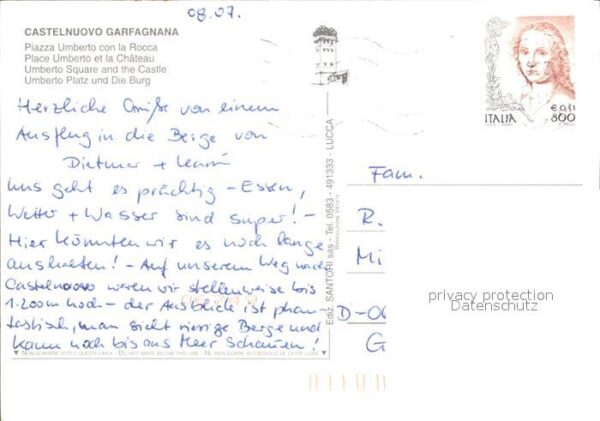 08.07.
CASTELNUOVO GARFAGNANA
Piazza Umberto con la Rocca
Place Umberto et la Château
Umberto Square and the Castle
Umberto Platz und Die Burg
Herzliche Grüße von einem
Ausflug in die Berge von
Dietmar +
Uns geht es prächtig - Essen,
Wetter + Wasser sind super! -
Hier könnten wir es noch lange
aushalten! - Auf unserem Weg nach
Castelnuovo waren wir stellenweise bis
1.200m hoch - der Ausblick ist phan-
tastisch, man sieht riesige Berge und
kann noch bis ans Meer schauen!
NON SCRIVERE SOTTO QUESTA LINEA - DO NOT WRITE BELOW THIS LINE - NE RIEN ECRIRE AU-DESSOUS DE CETTE LIGNE
Ediz. SANTORI sas - Tel. 0583 - 491333 - LUCCA
Riproduzione Vietata
ITALIA
€ 0,41
800
Fam.
R.
Mi
D-06
G
privacy protection
Datenschutz